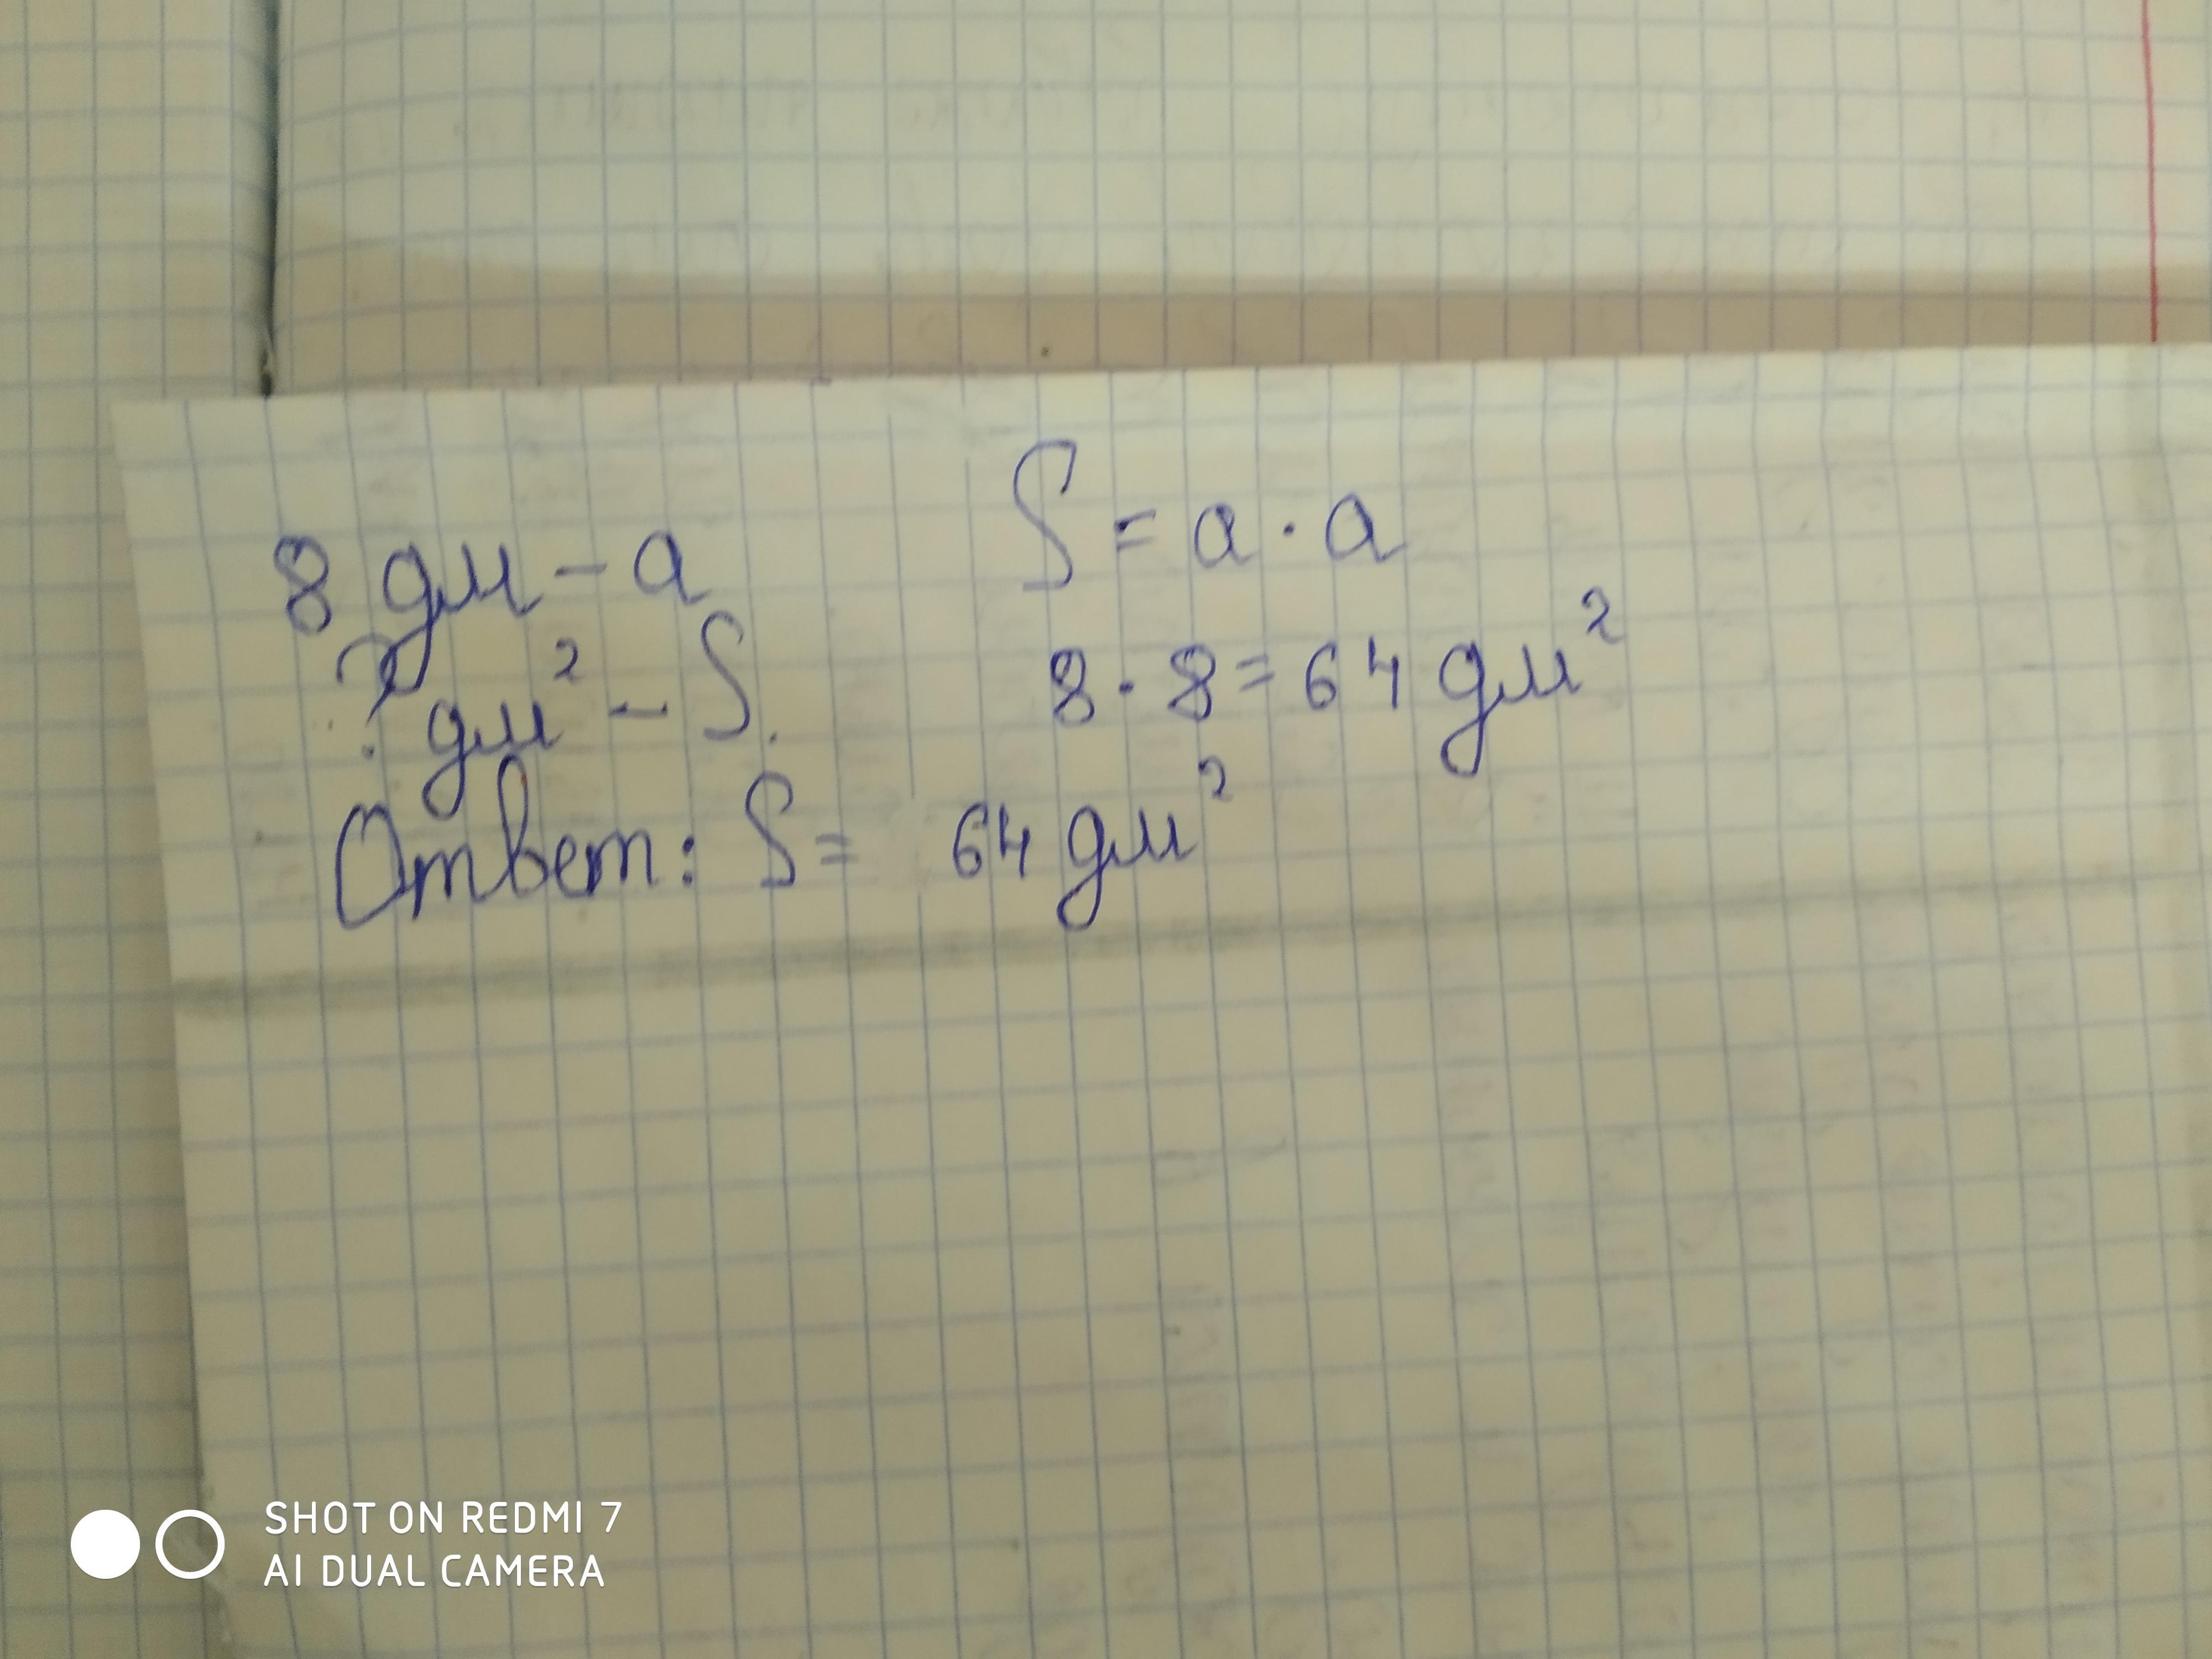 8 дм - a
? дм² - S.
S = a · a
8 · 8 = 64 дм²
Ответ: S = 64 дм²
SHOT ON REDMI 7
AI DUAL CAMERA